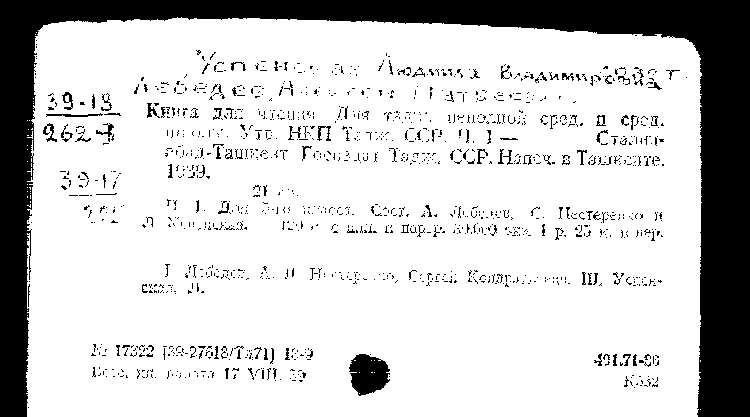 Успенская Людмила Владимировна
Лебедев, Алексей
39-19
262
Книга для чтения. Для тадж. неполной сред. и сред.
школы. Утв. НКП Тадж. ССР. Ч. 1 — Сталин-
абад-Ташкент Госиздат Тадж. ССР. Напеч. в Ташкенте.
1939.
39-17
21 см.
Ч. 1. Для класса. Сост. А. Лебедев, С. Нестеренко и
Л. Успенская. с илл. и портр. экз. 1 р. 25 к. в пер.
I. Лебедев, А. II Нестеренко, Сергей III. Успен-
ская, Л.
№ 17322 [39-27618/Тл71] 18-9
Всес. кн. палата 17 VIII. 39
491.71-86
К532